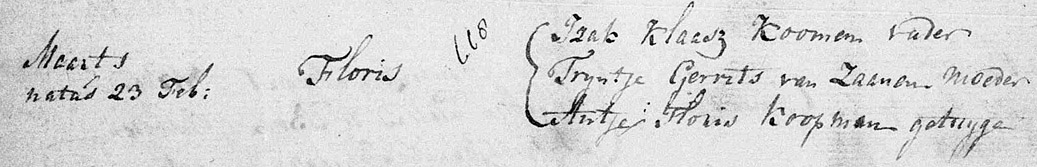 Maarts
natus 23 Feb:
Floris
668
Izak Klaasz Koomen vader
Tryntje Gerrits van Zaanen moeder
Antje Floris Koopman getuyge